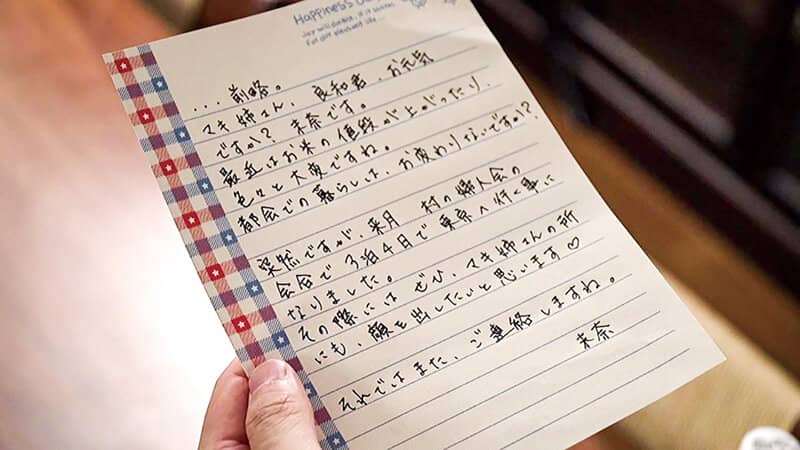 Happiness
...前略。
マキ姉さん、良和君、お元気
ですか？未奈です。
最近はお米の値段が上がったり、
色々と大変ですね。
都会での暮らしは、お変わりないですか？
突然ですが、来月 村の婦人会の
会合で3泊4日で東京へ行く事に
なりました。
その際にはぜひ、マキ姉さんの所
にも、顔を出したいと思います♡
それではまた、ご連絡しますね。
未奈